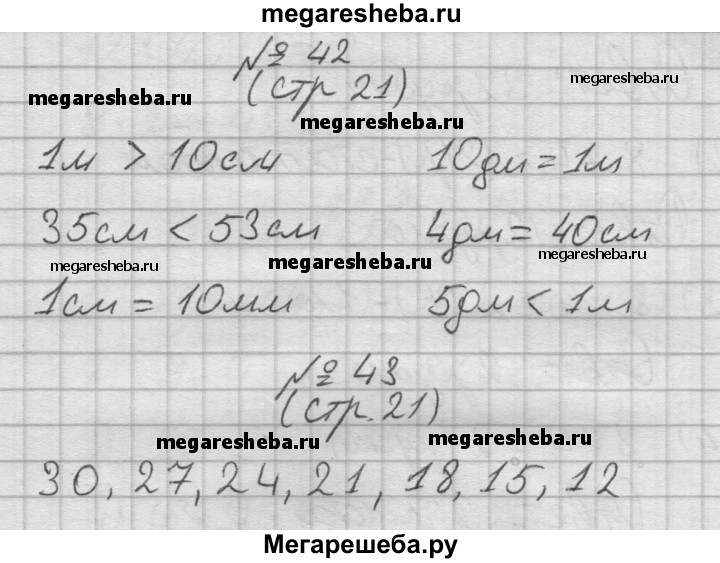 megaresheba.ru
№ 42
(стр 21)
megaresheba.ru
megaresheba.ru
megaresheba.ru
1м > 10см 10дм = 1м
35см < 53см 4дм = 40см
megaresheba.ru
megaresheba.ru
megaresheba.ru
1см = 10мм 5дм < 1м
№ 43
(стр. 21)
megaresheba.ru
megaresheba.ru
30, 27, 24, 21, 18, 15, 12
Мегарешеба.ру